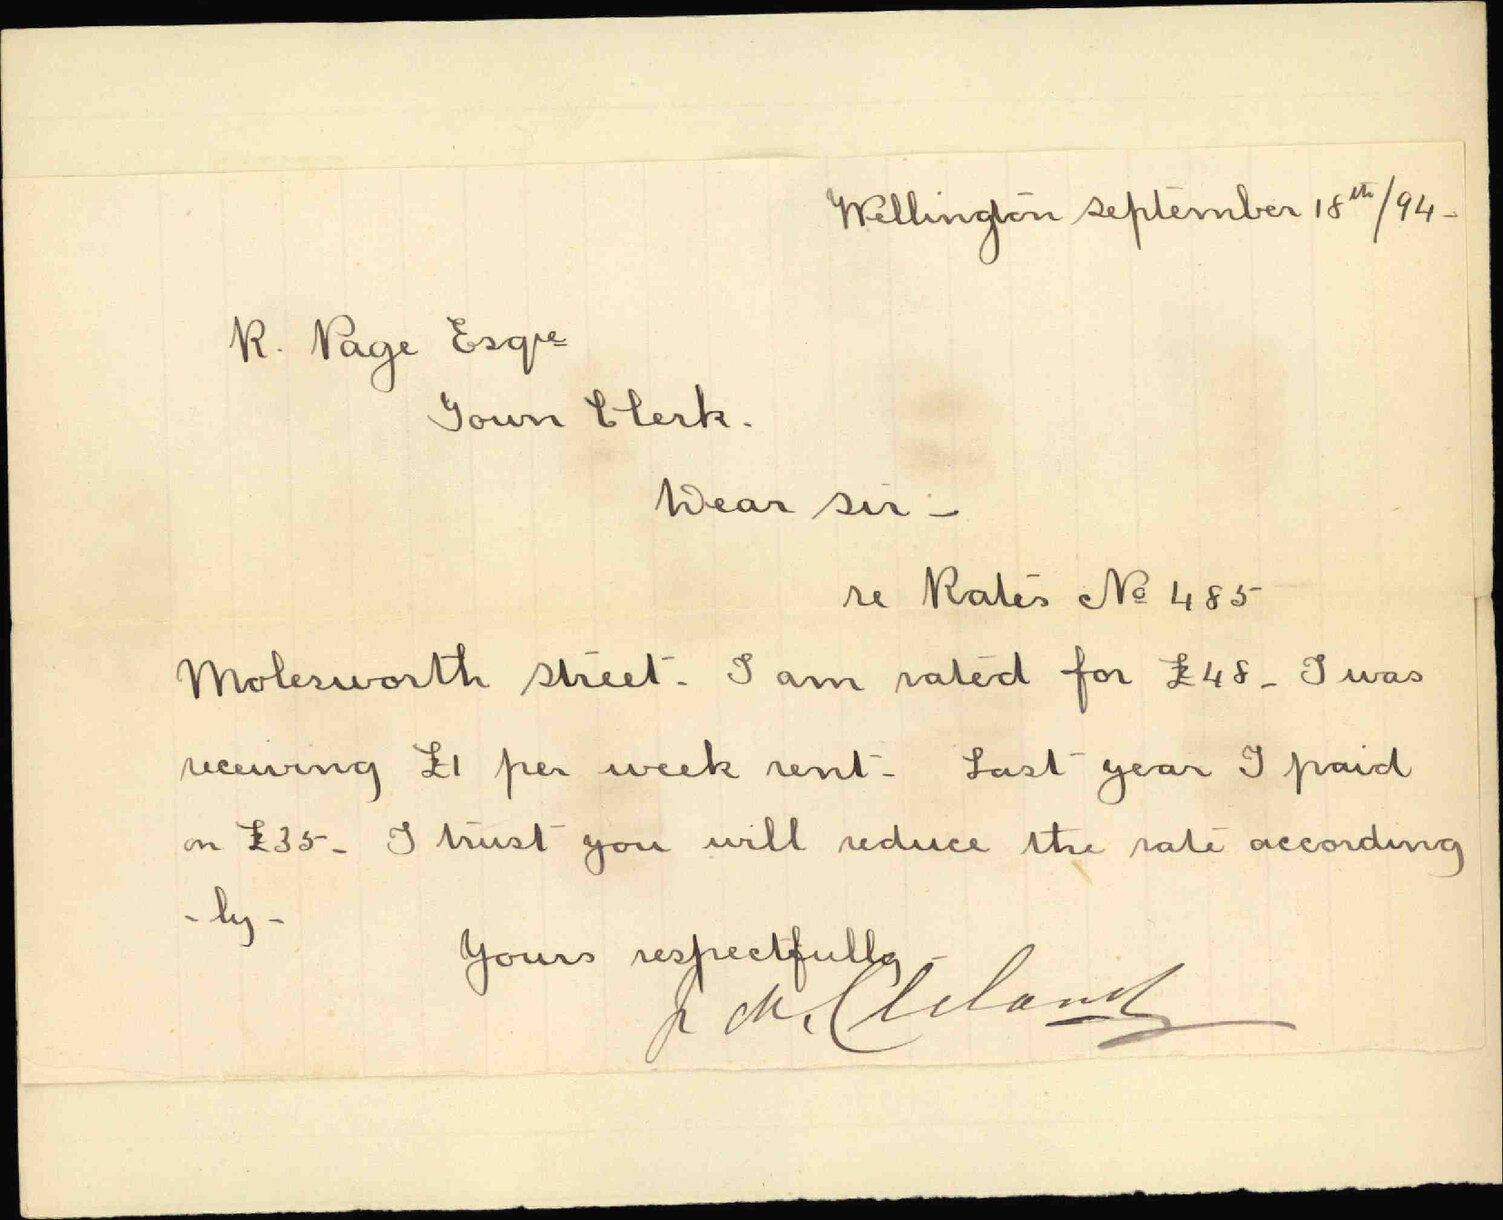 Wellington September 18th/94-
R. Page Esqre
Town Clerk.
Dear Sir -
re Rates No 485
Molesworth Street - I am rated for £48 - I was
receiving £1 per week rent - Last year I paid
on £35 - I trust you will reduce the rate according
- ly -
Yours respectfully
J McCleland